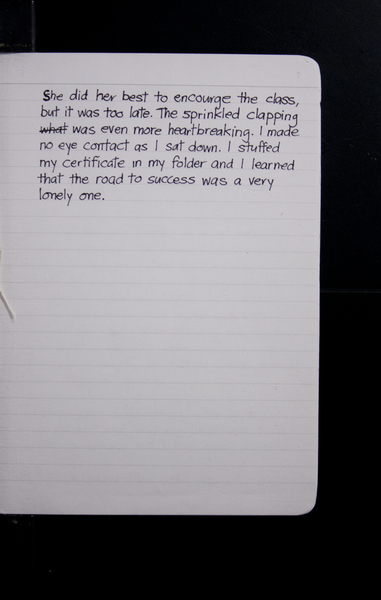 She did her best to encourge the class,
but it was too late. The sprinkled clapping
what was even more heartbreaking. I made
no eye contact as I sat down. I stuffed
my certificate in my folder and I learned
that the road to success was a very
lonely one.